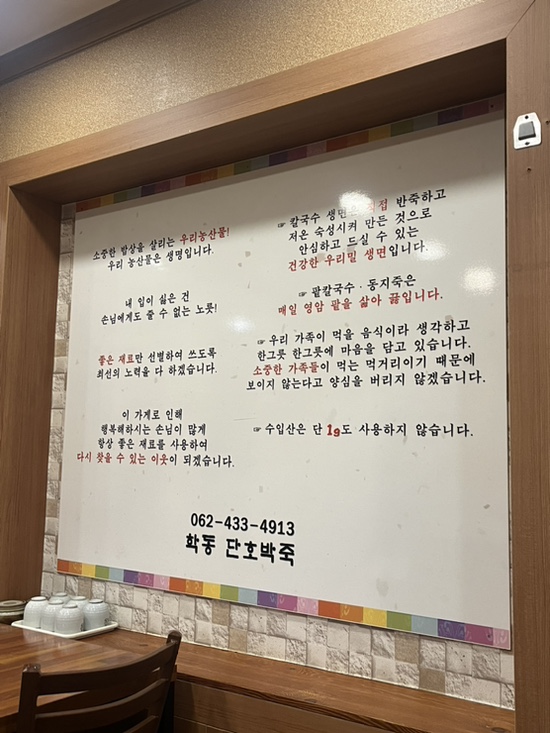 소중한 밥상을 살리는 우리농산물!
우리 농산물은 생명입니다.
내 입이 싫은 건
손님에게도 줄 수 없는 노릇!
좋은 재료만 선별하여 쓰도록
최선의 노력을 다 하겠습니다.
이 가게로 인해
행복해하시는 손님이 많게
항상 좋은 재료를 사용하여
다시 찾을 수 있는 이웃이 되겠습니다.
☞ 칼국수 생면은 직접 반죽하고
저온 숙성시켜 만든 것으로
안심하고 드실 수 있는
건강한 우리밀 생면입니다.
☞ 팥칼국수 · 동지죽은
매일 영암 팥을 삶아 끓입니다.
☞ 우리 가족이 먹을 음식이라 생각하고
한그릇 한그릇에 마음을 담고 있습니다.
소중한 가족들이 먹는 먹거리이기 때문에
보이지 않는다고 양심을 버리지 않겠습니다.
☞ 수입산은 단 1g도 사용하지 않습니다.
062-433-4913
학동 단호박죽